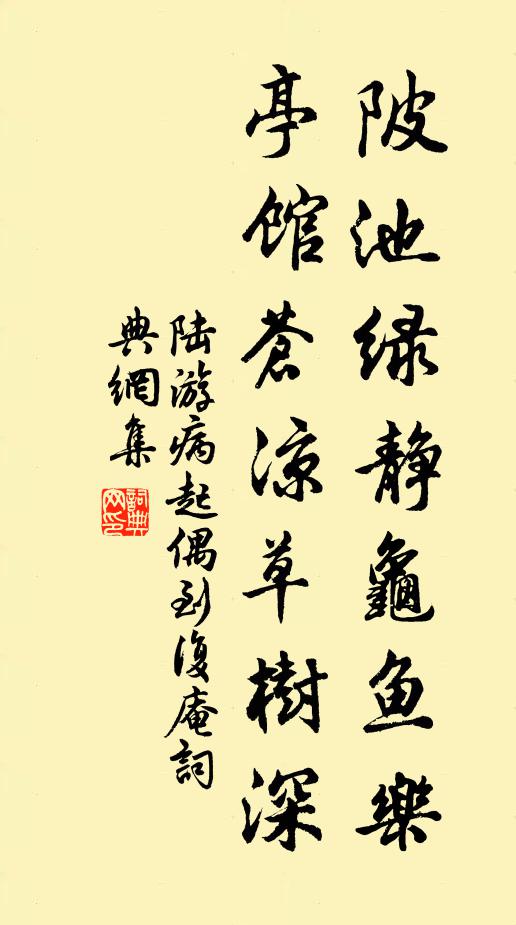 陂池緑静龜鱼樂
亭館蒼涼草樹深
陆游病起偶到復庵詞
典網集
詞典网印